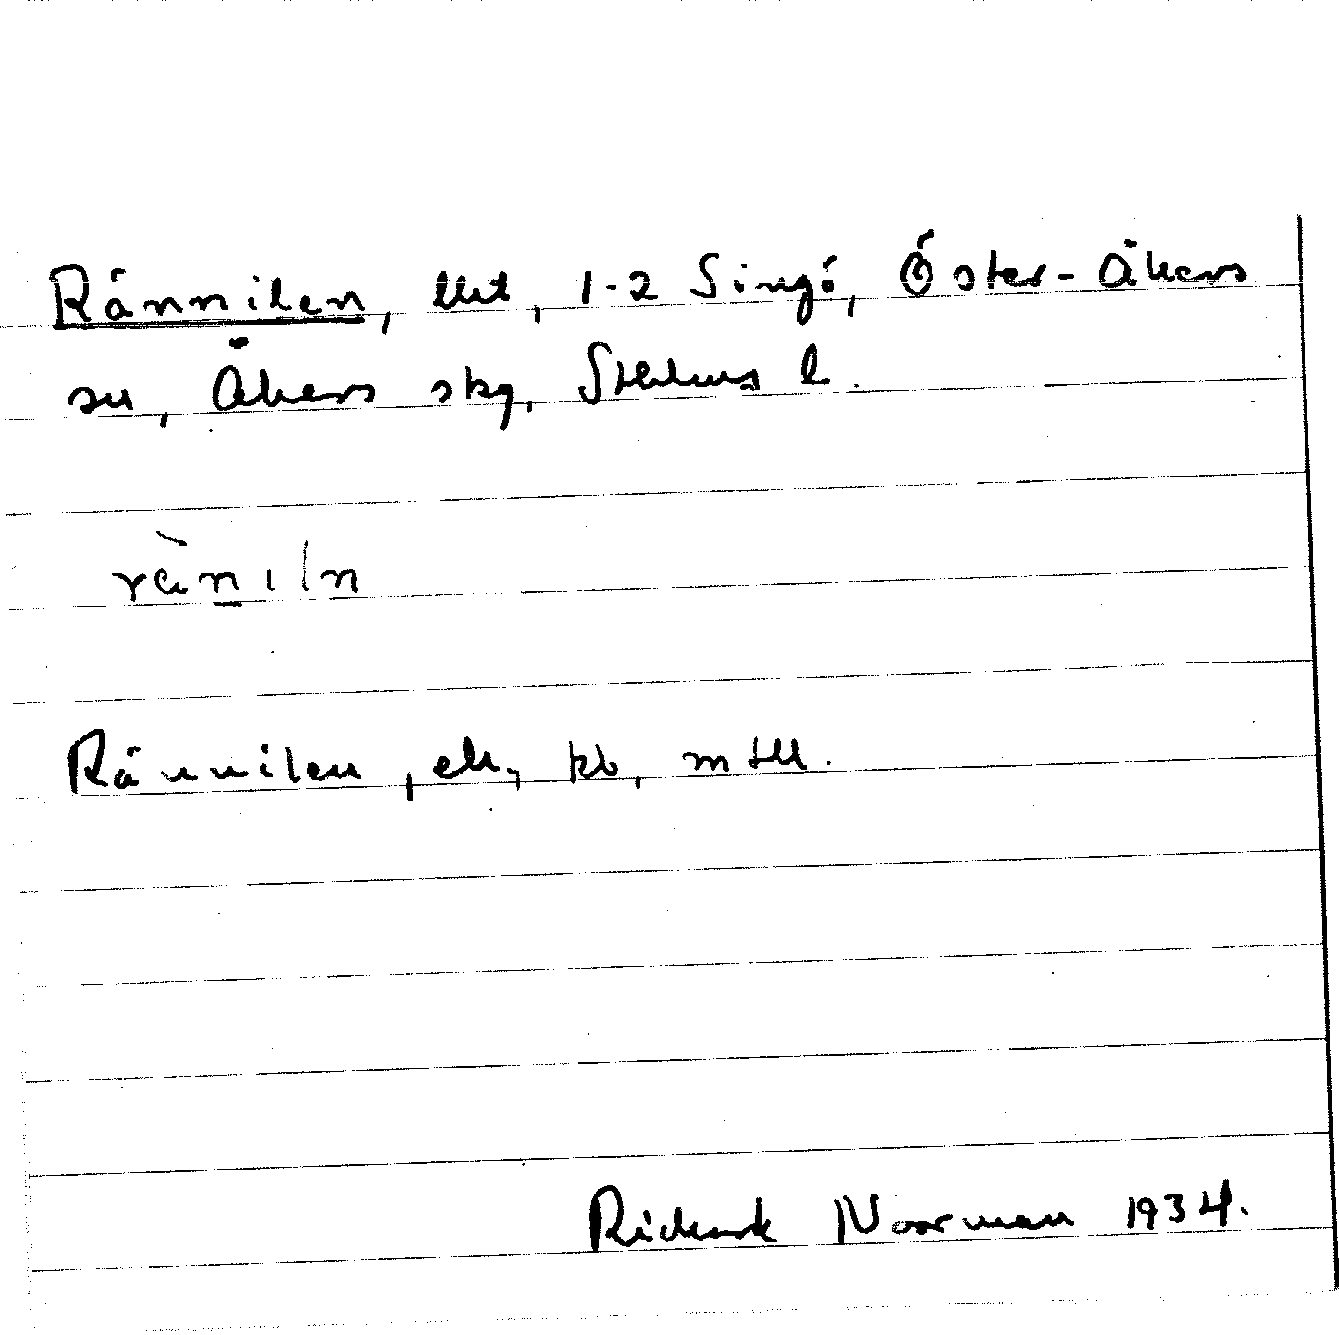 Rännilen, tlht, 1-2 Singö, Öster-Åkers
sn, Åkers skg, Sthlms l.
rä̀nıln
Rännilen, ek, kb, mtll.
Richard Noorman 1934.